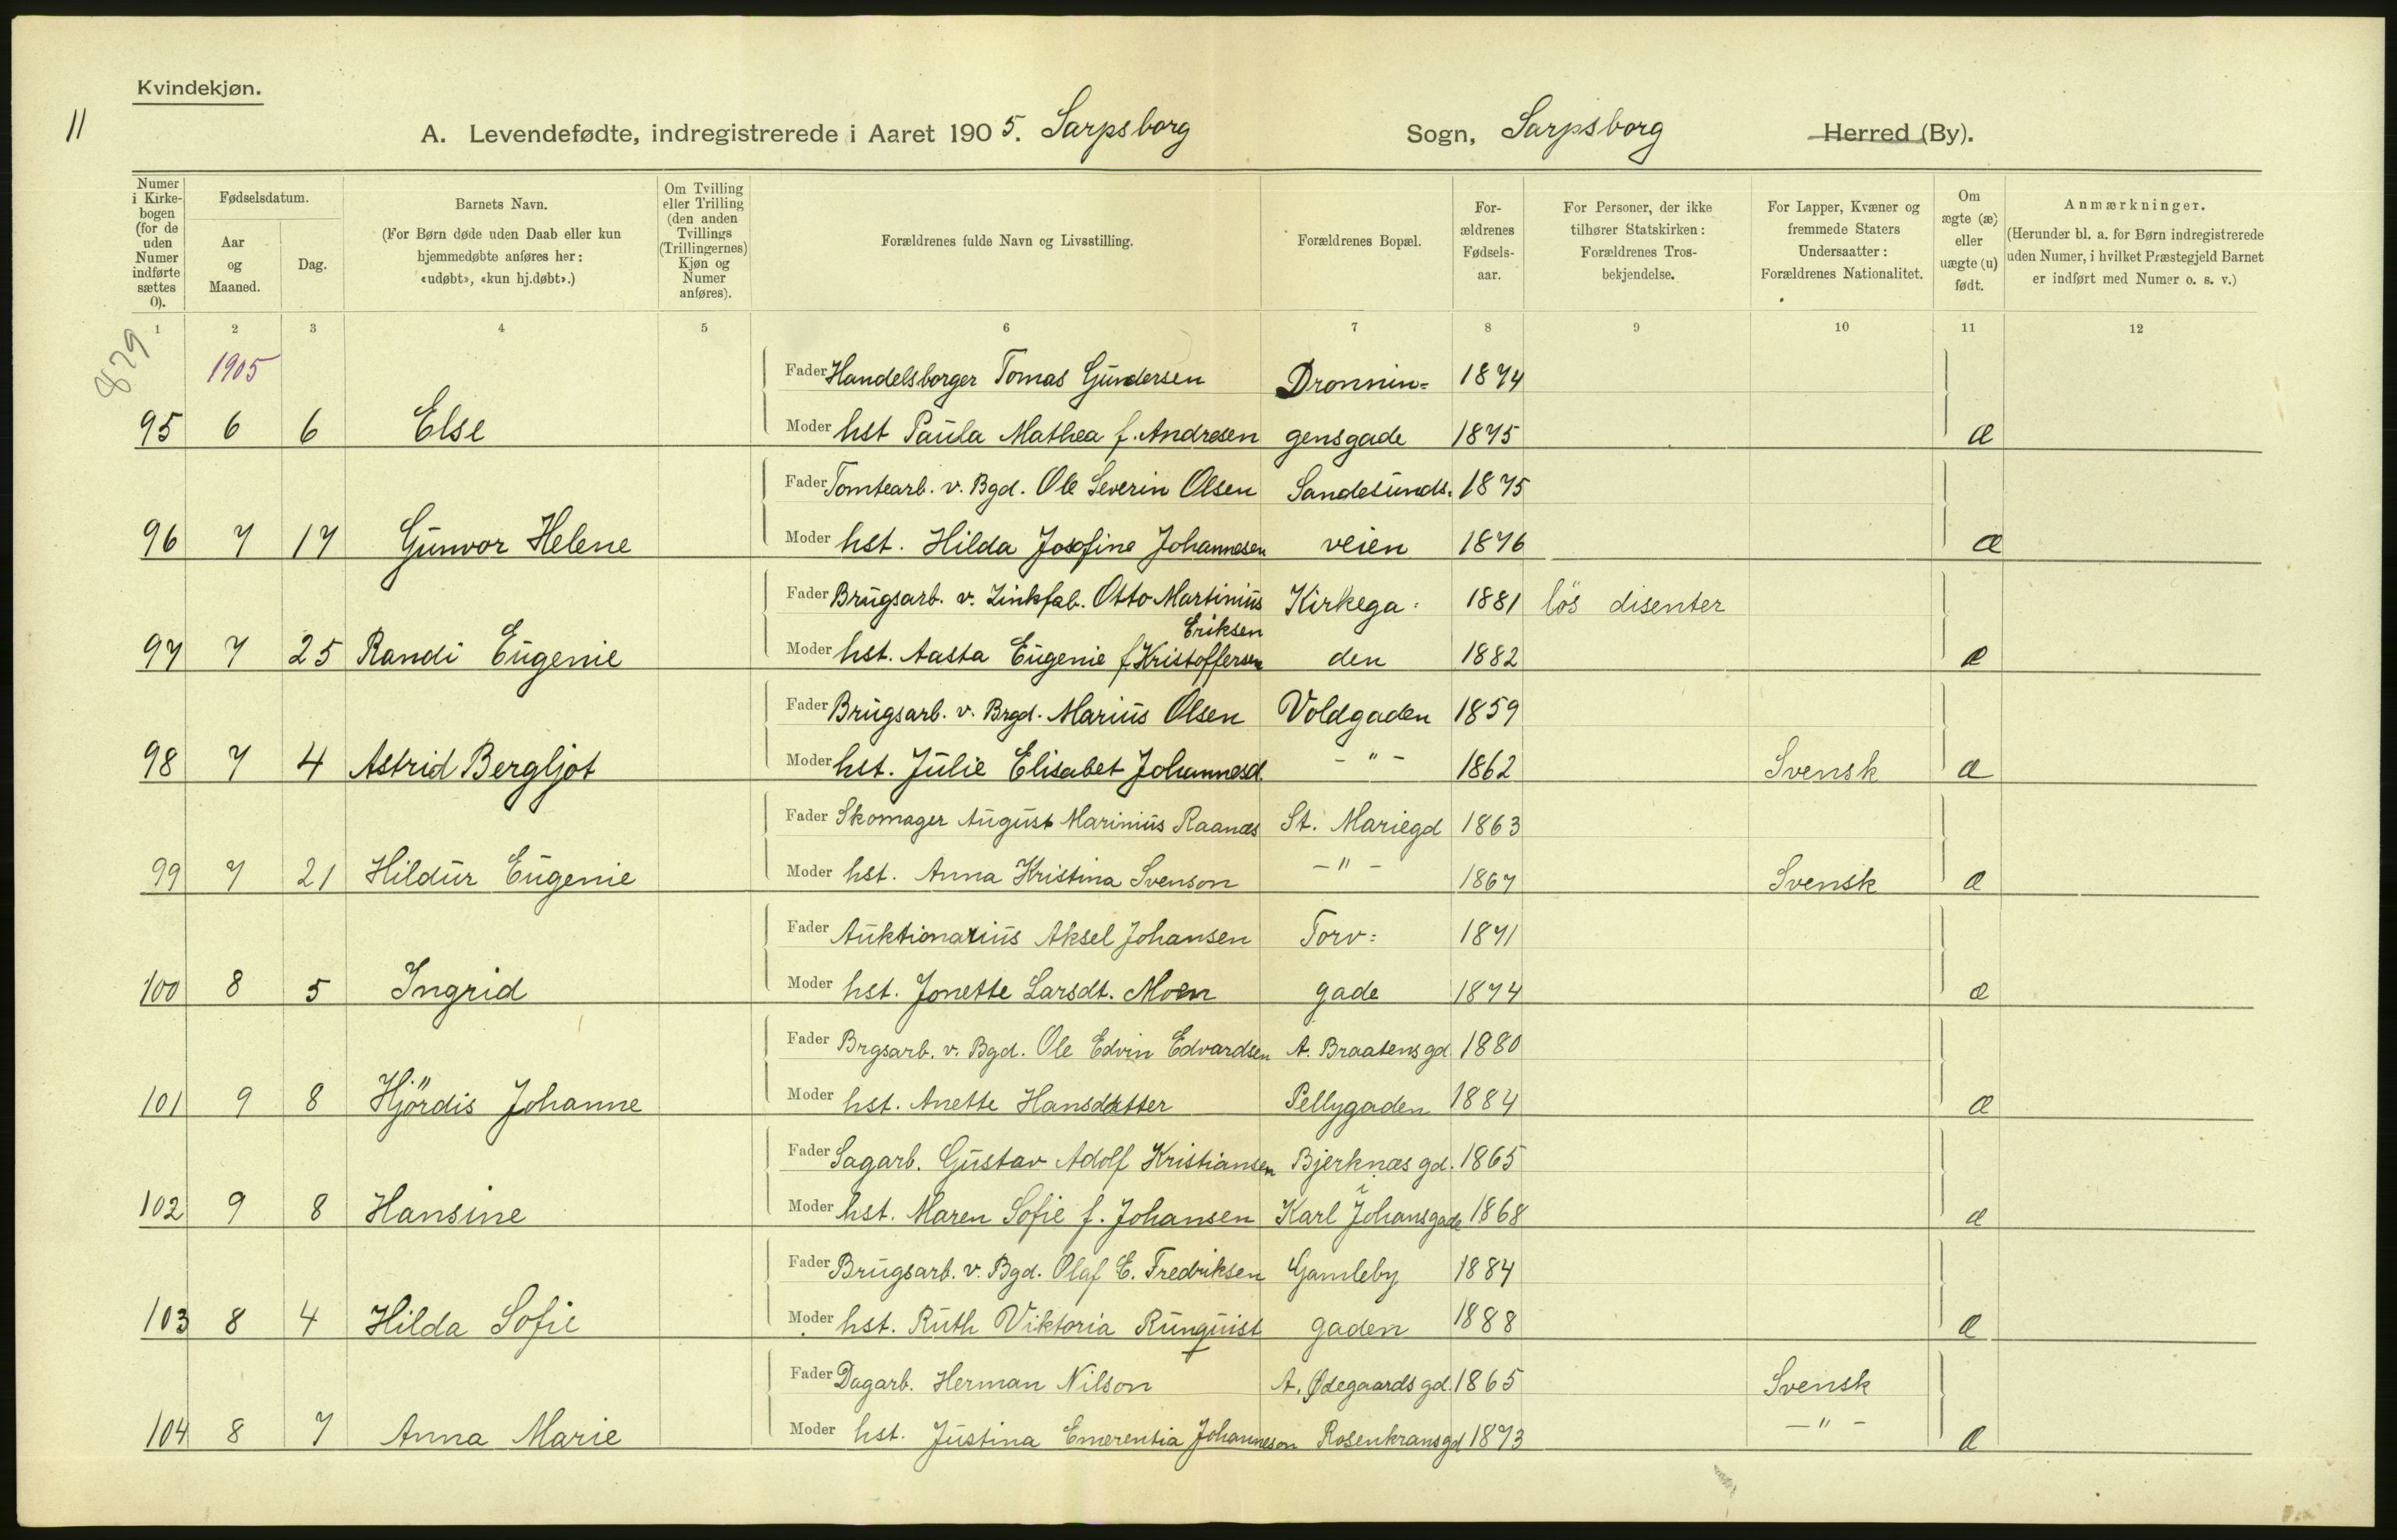 Kvindekjøn.
11
A. Levendefødte, indregistrerede i Aaret 1905. Sarpsborg Sogn, Sarpsborg Herred (By).
Numer i Kirkebogen (for de uden Numer indførte sættes 0).
Fødselsdatum.
Aar og Maaned.
Dag.
Barnets Navn.
(For Børn døde uden Daab eller kun hjemmedøbte anføres her: «udøbt», «kun hj.døbt».)
Om Tvilling eller Trilling (den anden Tvillings (Trillingernes) Kjøn og Numer anføres).
Forældrenes fulde Navn og Livsstilling.
Forældrenes Bopæl.
Forældrenes Fødselsaar.
For Personer, der ikke tilhører Statskirken: Forældrenes Trosbekjendelse.
For Lapper, Kvæner og fremmede Staters Undersaatter: Forældrenes Nationalitet.
Om ægte (æ) eller uægte (u) født.
Anmærkninger.
(Herunder bl. a. for Børn indregistrerede uden Numer, i hvilket Præstegjeld Barnet er indført med Numer o. s. v.)
1 2 3 4 5 6 7 8 9 10 11 12
879
1905
Fader Handelsborger Tomas Gundersen Dronnin= 1874
95 6 6 Else Moder hst Paula Mathea f. Andresen gensgade 1875 æ
Fader Tomtearb. v. Bgd. Ole Severin Olsen Sandesunds. 1875
96 7 17 Gunvor Helene Moder hst. Hilda Josefine Johannesen veien 1876 æ
Fader Brugsarb. v. Zinkfab. Otto Martinius Kirkega: 1881 lös disenter
Eriksen
97 7 25 Randi Eugenie Moder hst. Aasta Eugenie f Kristoffersen den 1882 æ
Fader Brugsarb. v. Brgd. Marius Olsen Voldgaden 1859
98 7 4 Astrid Bergljot Moder hst. Julie Elisabet Johannesd. - " - 1862 Svensk æ
Fader Skomager August Marinius Raanæs St. Mariegd 1863
99 7 21 Hildur Eugenie Moder hst. Anna Kristina Svenson - " - 1867 Svensk æ
Fader Auktionarius Aksel Johansen Torv= 1871
100 8 5 Ingrid Moder hst. Jonette Larsdt. Moen gade 1874 æ
Fader Brgsarb. v. Bgd. Ole Edvin Edvardsen A. Braatens gd. 1880
101 9 8 Hjördis Johanne Moder hst. Anette Hansdatter Pellygaden 1884 æ
Fader Sagarb. Gustav Adolf Kristiansen Bjerknæs gd. 1865
102 9 8 Hansine Moder hst. Maren Sofie f. Johansen Karl Johansgade 1868 æ
Fader Brugsarb. v. Bgd. Olaf E. Fredriksen Gamleby 1884
103 8 4 Hilda Sofie Moder hst. Ruth Viktoria Runquist gaden 1888 æ
Fader Dagarb. Herman Nilson A. Ødegaards gd. 1865 Svensk
104 8 7 Anna Marie Moder hst. Justina Emerentia Johanneson Rosenkransgd 1873 - " - æ